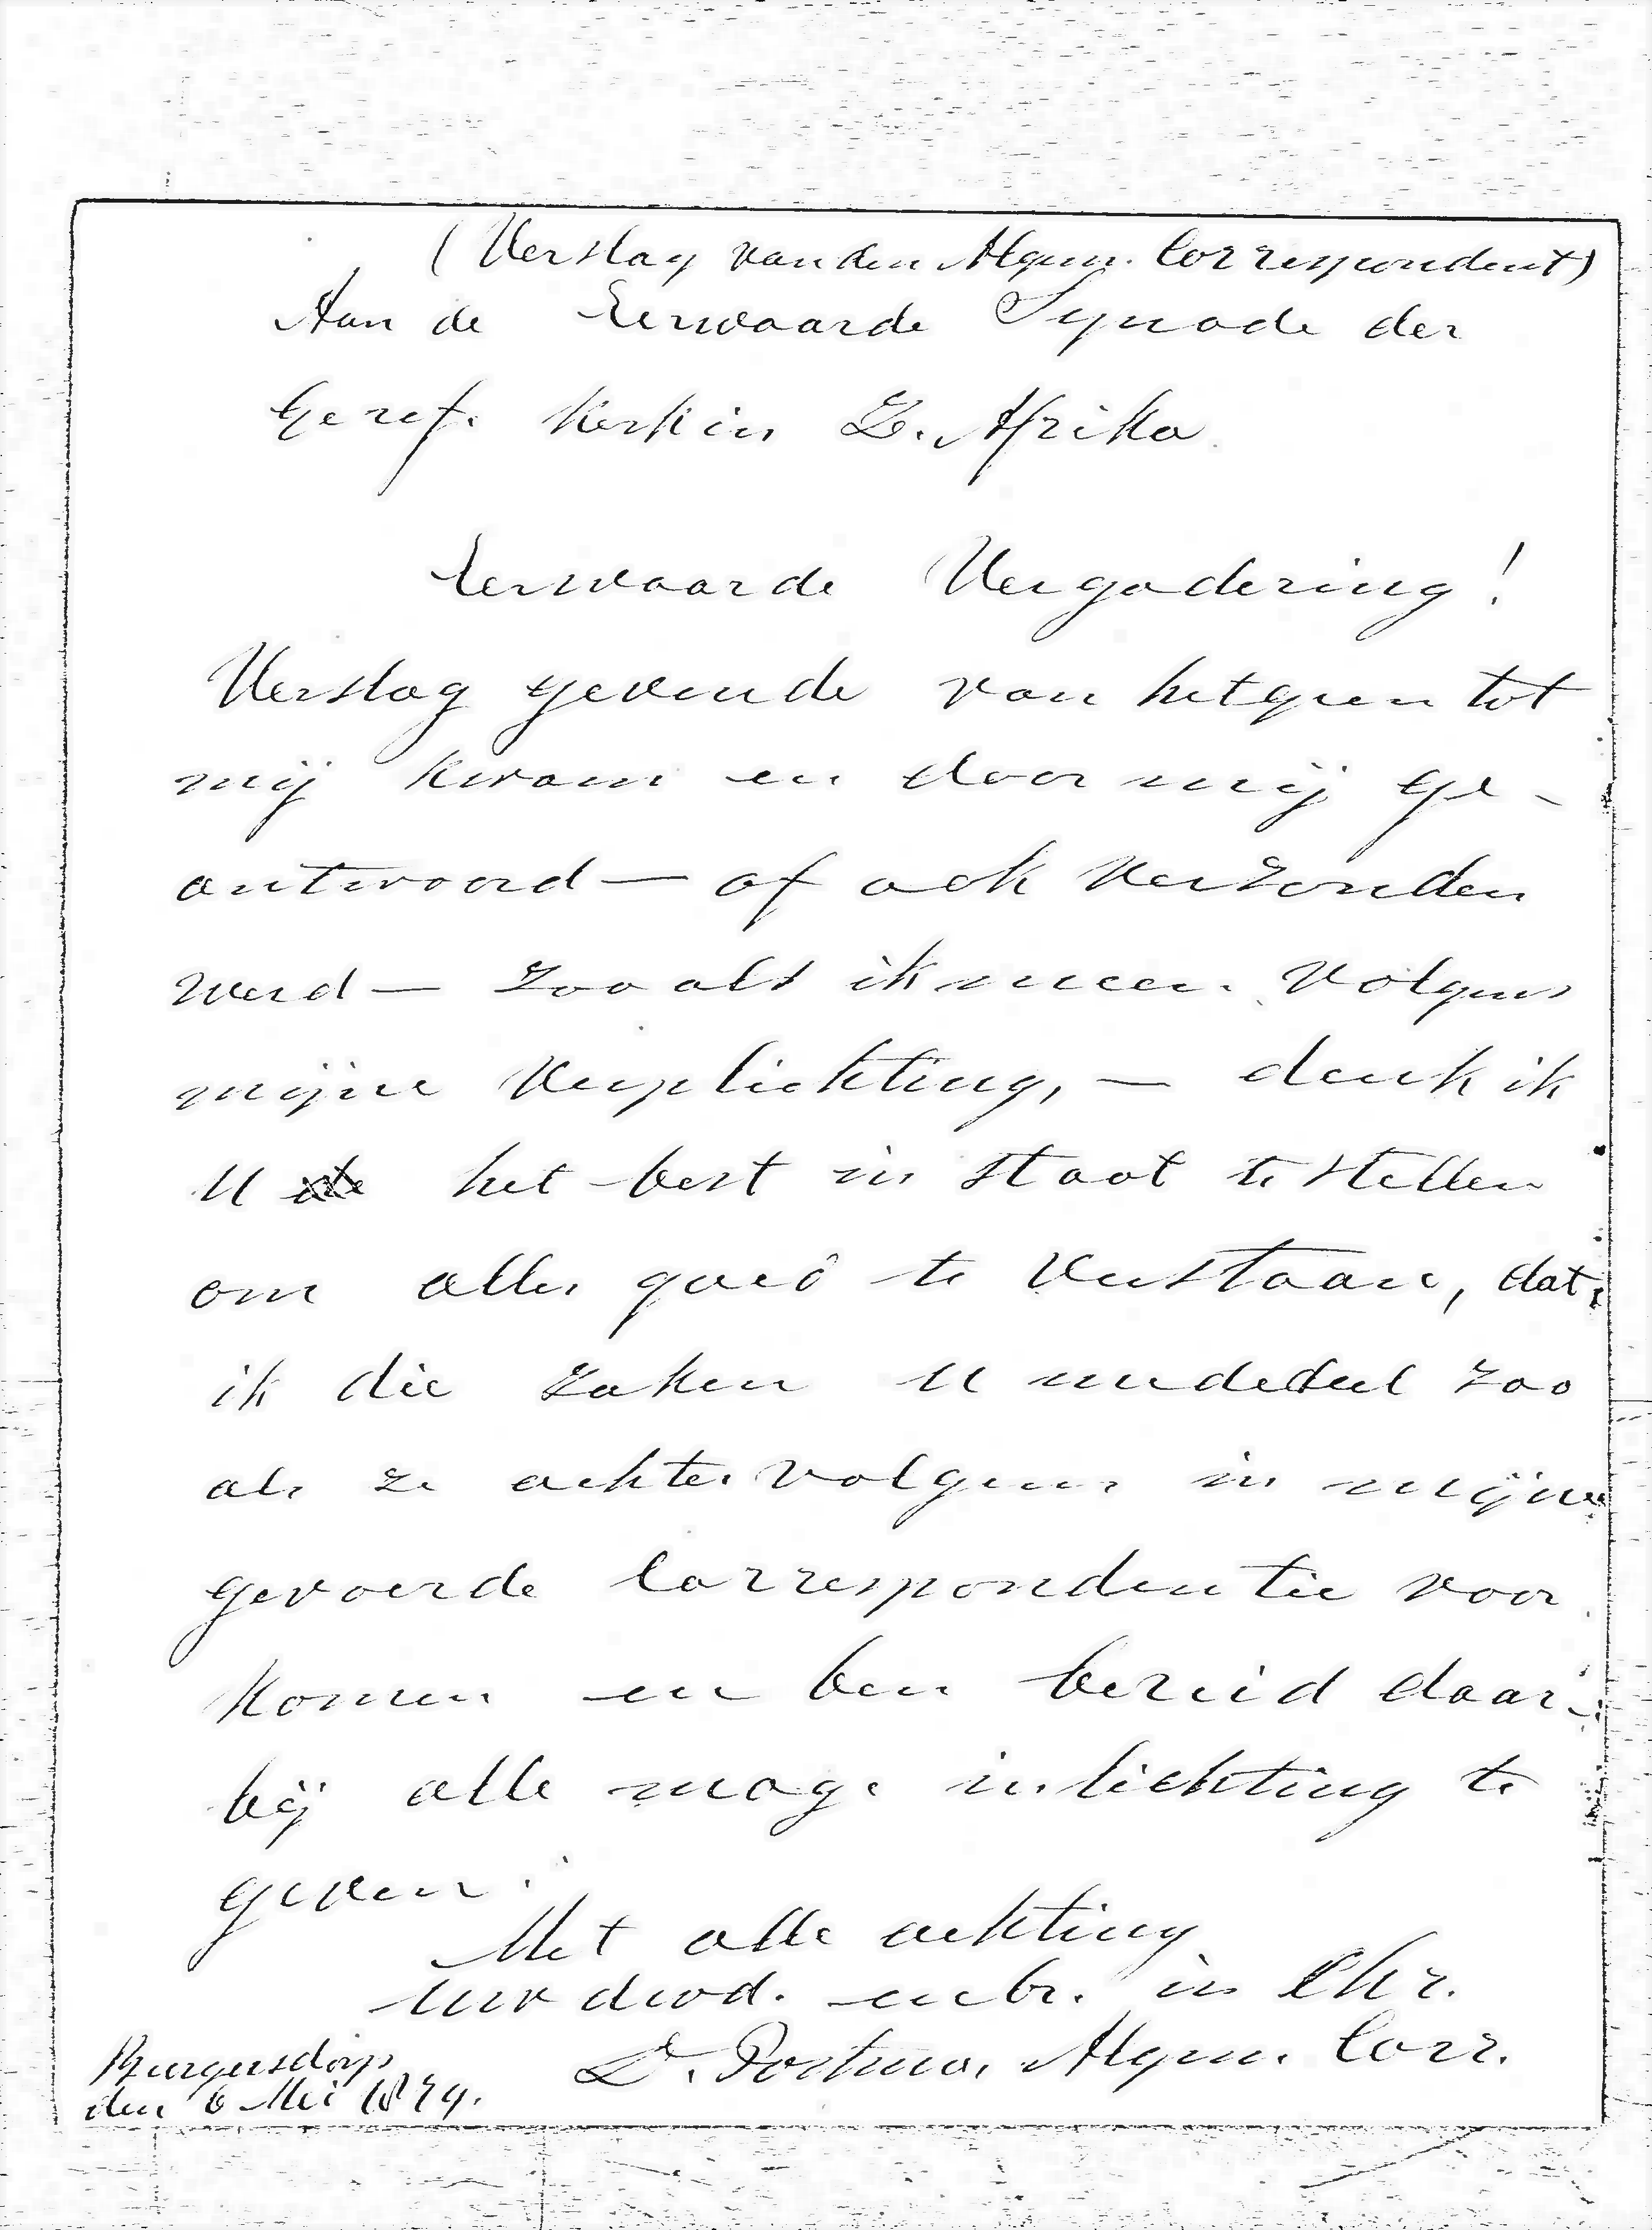 (Verslag van den Algem. Correspondent)
Aan de Eerwaarde Synode der
Geref. Kerk in Z. Afrika.
Eerwaarde Vergadering!
Verslag gevende van hetgeen tot
mij kwam en door mij ge-
antwoord — of ook verzonden
werd — zoo als ik meen. Volgens
mijne verplichting, — denk ik
U het best in staat te stellen
om alles goed te verstaan, dat
ik die zaken U mededeel zoo
als ze achtervolgens in mijne
gevoerde Correspondentie voor
komen en ben bereid daar-
bij alle mog. inlichting te
geven.
Met alle achting
Uw dwd. en br. in Chr.
D. Postma, Algem. Corr.
Burgersdorp
den 6 Mei 1879.